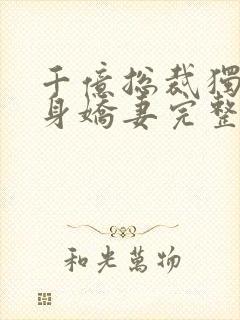 千億總裁獨
身嬌妻完整
和光萬物